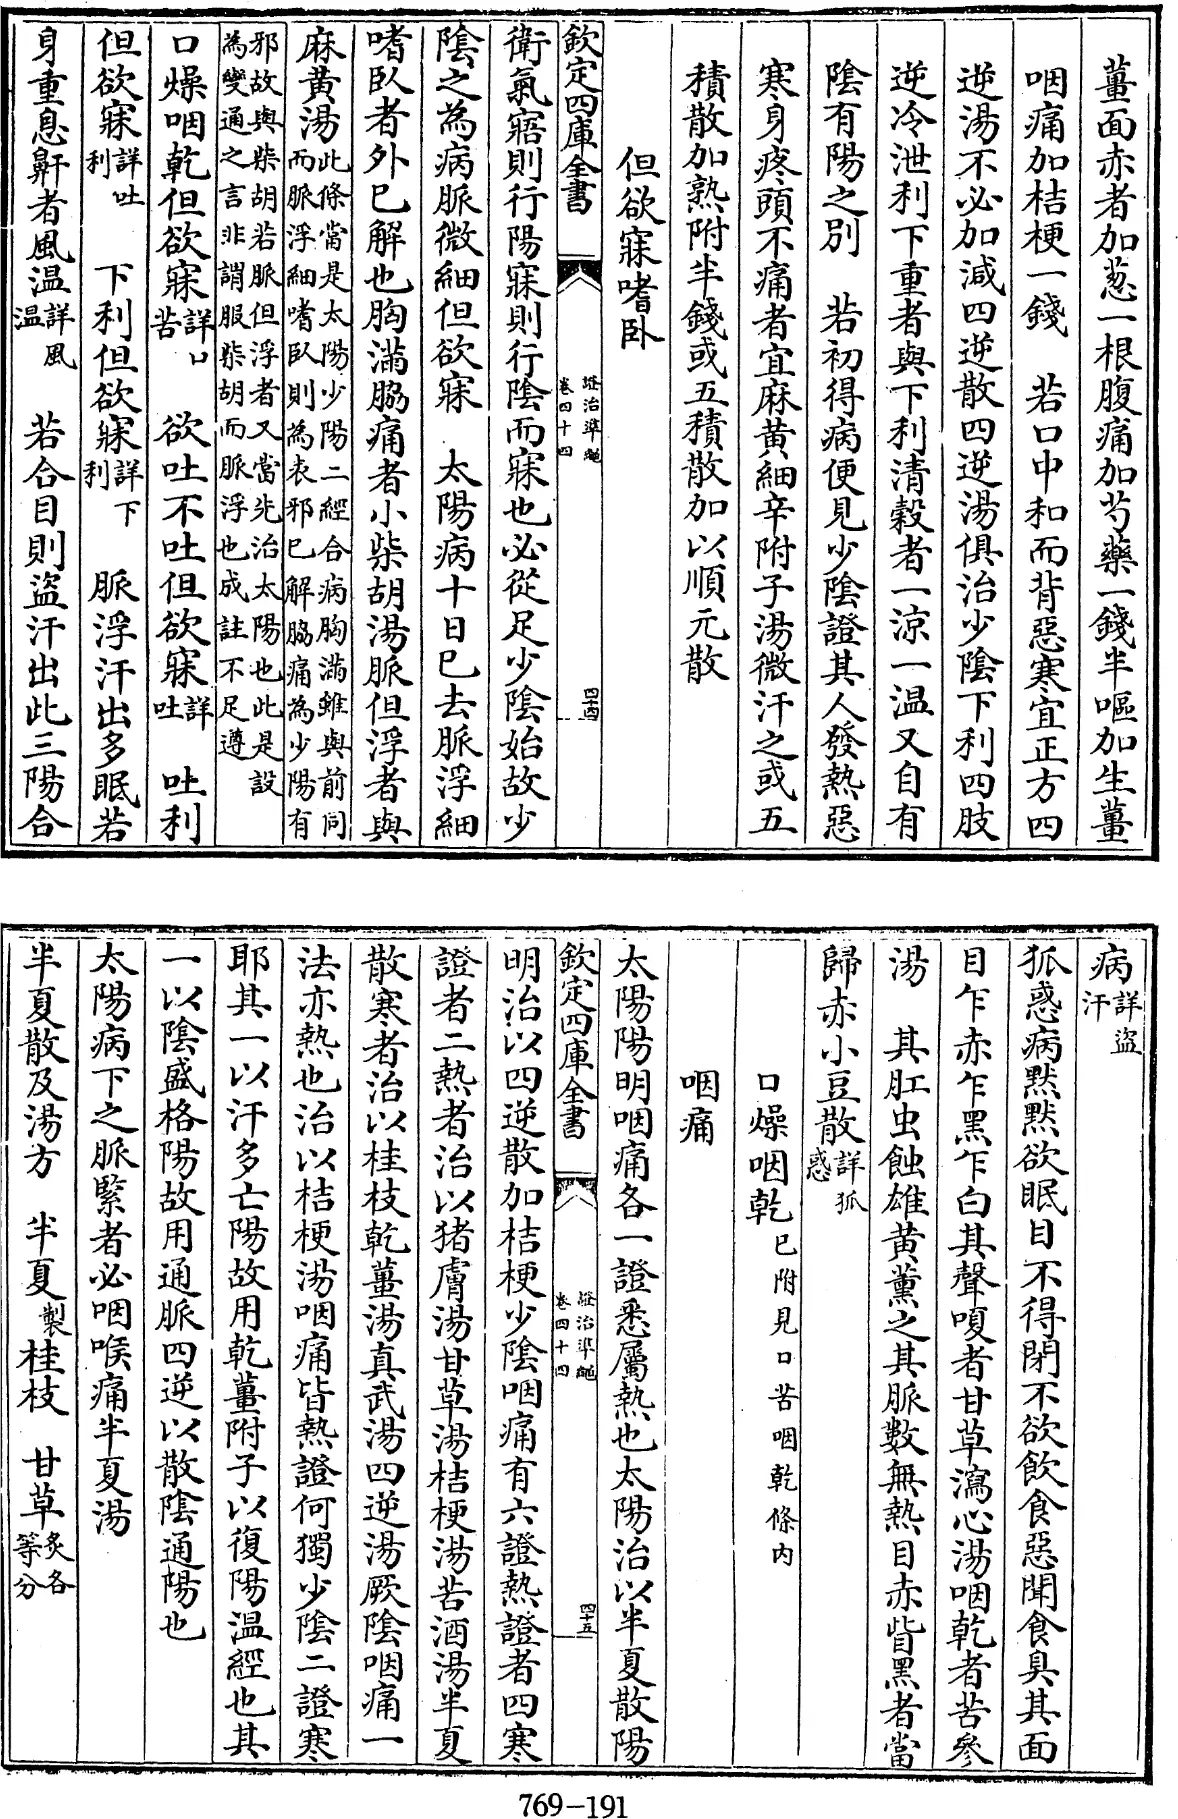 薑面赤者加葱一根腹痛加芍藥一錢半嘔加生薑
咽痛加桔梗一錢　若口中和而背惡寒宜正方四
逆湯不必加減四逆散四逆湯俱治少陰下利四肢
逆冷泄利下重者與下利清穀者一涼一温又自有
陰有陽之别　若初得病便見少陰證其人發熱惡
寒身疼頭不痛者宜麻黄細辛附子湯微汗之或五
積散加熟附半錢或五積散加以順元散
但欲寐嗜卧
欽定四庫全書
證治準繩
卷四十四
四十四
衛氣寤則行陽寐則行陰而寐也必從足少陰始故少
陰之為病脈微細但欲寐　太陽病十日已去脈浮細
嗜卧者外已解也胸滿脇痛者小柴胡湯脈但浮者與
麻黄湯此條當是太陽少陽二經合病胸滿雖與前同
而脈浮細嗜卧則為表邪已解脇痛為少陽有
邪故與柴胡若脈但浮者又當先治太陽也此是設
為變通之言非謂服柴胡而脈浮也成註不足遵
口燥咽乾但欲寐詳口苦　欲吐不吐但欲寐詳吐　吐利
但欲寐詳吐利　下利但欲寐詳下利　脈浮汗出多眠若
身重息鼾者風温詳風温　若合目則盜汗出此三陽合
病詳盜汗
狐惑病黙黙欲眠目不得閉不欲飲食惡聞食臭其面
目乍赤乍黑乍白其聲嗄者甘草瀉心湯咽乾者苦參
湯　其肛虫蝕雄黄薫之其脈數無熱目赤眥黑者當
歸赤小豆散詳狐惑
口燥咽乾已附見口苦咽乾條内
咽痛
太陽陽明咽痛各一證悉屬熱也太陽治以半夏散陽
欽定四庫全書
證治準繩
卷四十四
四十五
明治以四逆散加桔梗少陰咽痛有六證熱證者四寒
證者二熱者治以猪膚湯甘草湯桔梗湯苦酒湯半夏
散寒者治以桂枝乾薑湯真武湯四逆湯厥陰咽痛一
法亦熱也治以桔梗湯咽痛皆熱證何獨少陰二證寒
耶其一以汗多亡陽故用乾薑附子以復陽温經也其
一以陰盛格陽故用通脈四逆以散陰通陽也
太陽病下之脈緊者必咽喉痛半夏湯
半夏散及湯方　半夏製　桂枝　甘草炙各等分
769-191